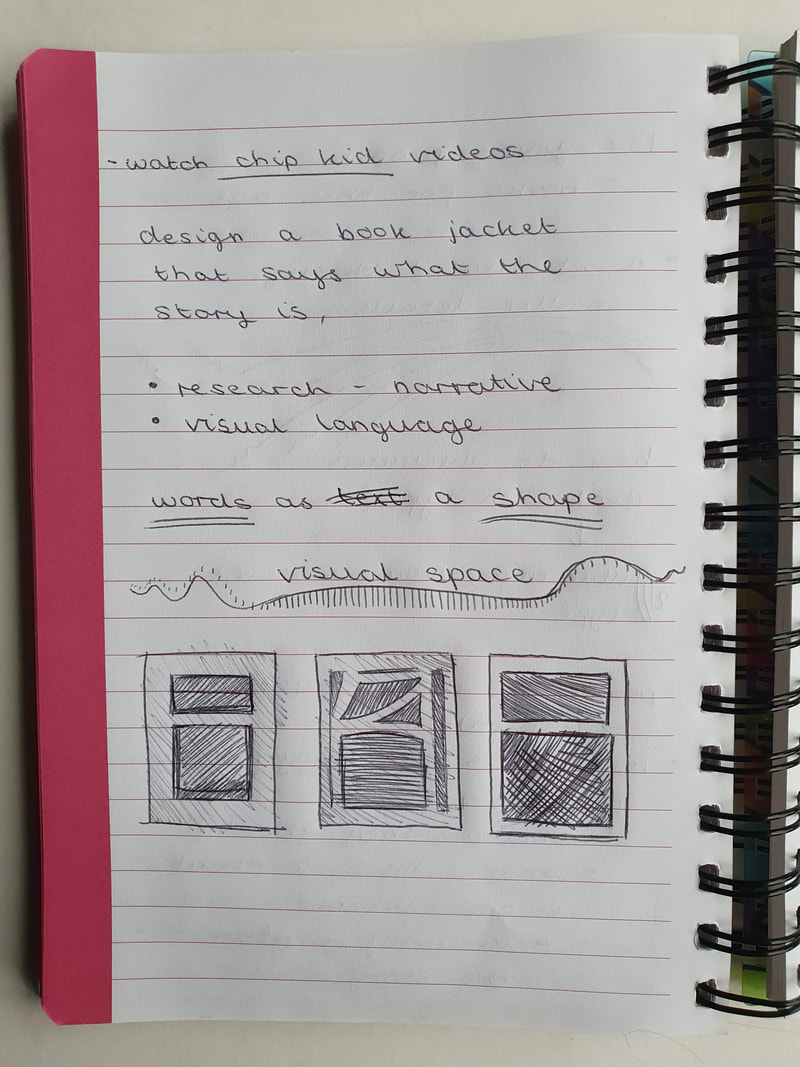 - watch chip kid videos
design a book jacket
that says what the
story is,
• research - narrative
• visual language
words as text a shape
visual space